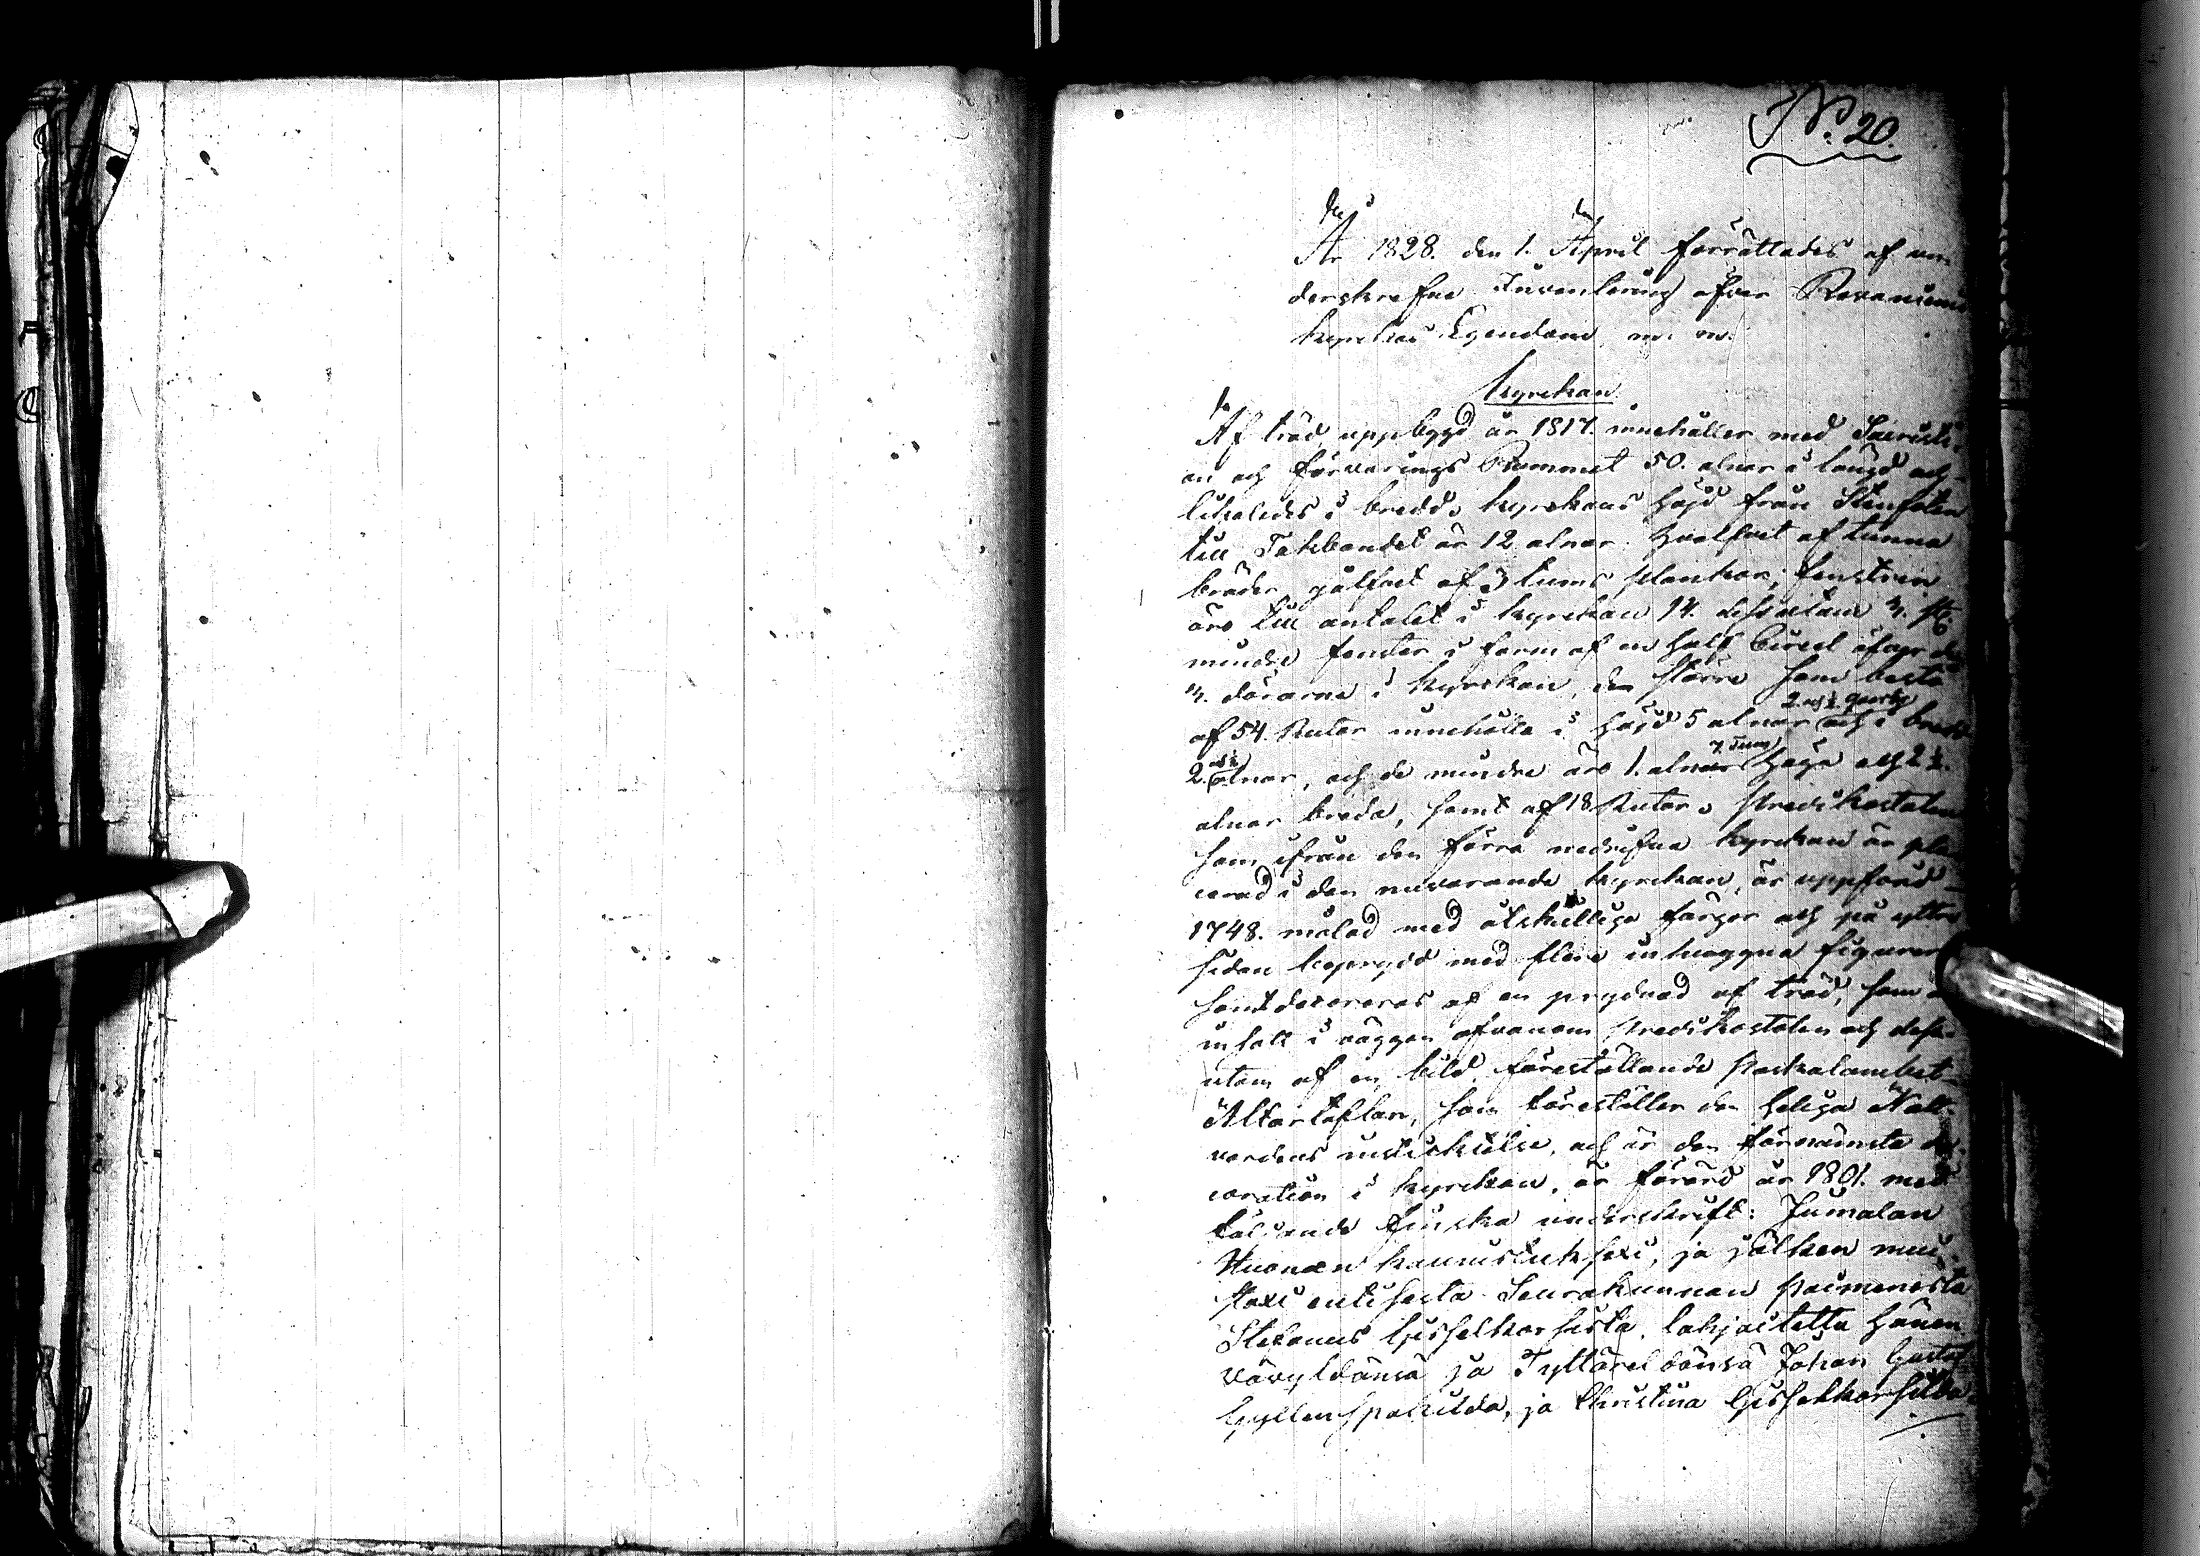 No. 20.
År 1828. den 1. April förrättades af un
derskrefne Inventering öfver Rovaniemi
kyrkas Egendom m. m.
Kyrckan.
Af träd uppbygd år 1817. innehåller med Sacristi
an och förvarings Rummet 50. alnar i längd och
likaledes i bredd. kyrckans höjd från Stenfoten
till Takbandet är 12 alnar. Hvalfvet af tunna
bräder, gålfvet af 3 tums plankor; fenstren
äro till antalet i kyrckan 14. dessutom 3. st.
mindre fenster i form af en half Circel öfver de
3. dörarne i kyrckan, de större som bestå
af 54. Rutor innehålla i höjd 5 alnar 2 och ½ quarter och i bredd
2. och ½ alnar, och de mindre äro 1. alnar 7. Tum höga och 2 ½.
alnar breda, samt af 18 Rutor. Predikostolen
som ifrån den förra nedrifna kyrckan är pla
cerad i den nuvarande kyrckan, är uppförd
1748. målad med åtskillige färgor och på yttre
sidan beprydd med flere inhuggna figurer
samt decoreras af en prydnad af träd, som är
insatt i väggen ofvanom Predikostolen och dess
utom af en bild, föreställande Paskalambet
Altartaflan, som föreställer den heliga Natt
vardens instickelse, och är den förnämsta de
coration i kyrckan, är förärd år 1801. med
följande finska underskrift: Jumalan
Huonen kaunistuksexi, ja jälken mui
stoxi entisesta Seurakunnan Paimenesta
Stefanus Gisselkorsista, lahjoitettu hänen
Vävyldänsä ja Tyttäreldänsä Johan Gustaf
Gyllenspatzilda, ja Christina Gisselkorsilda